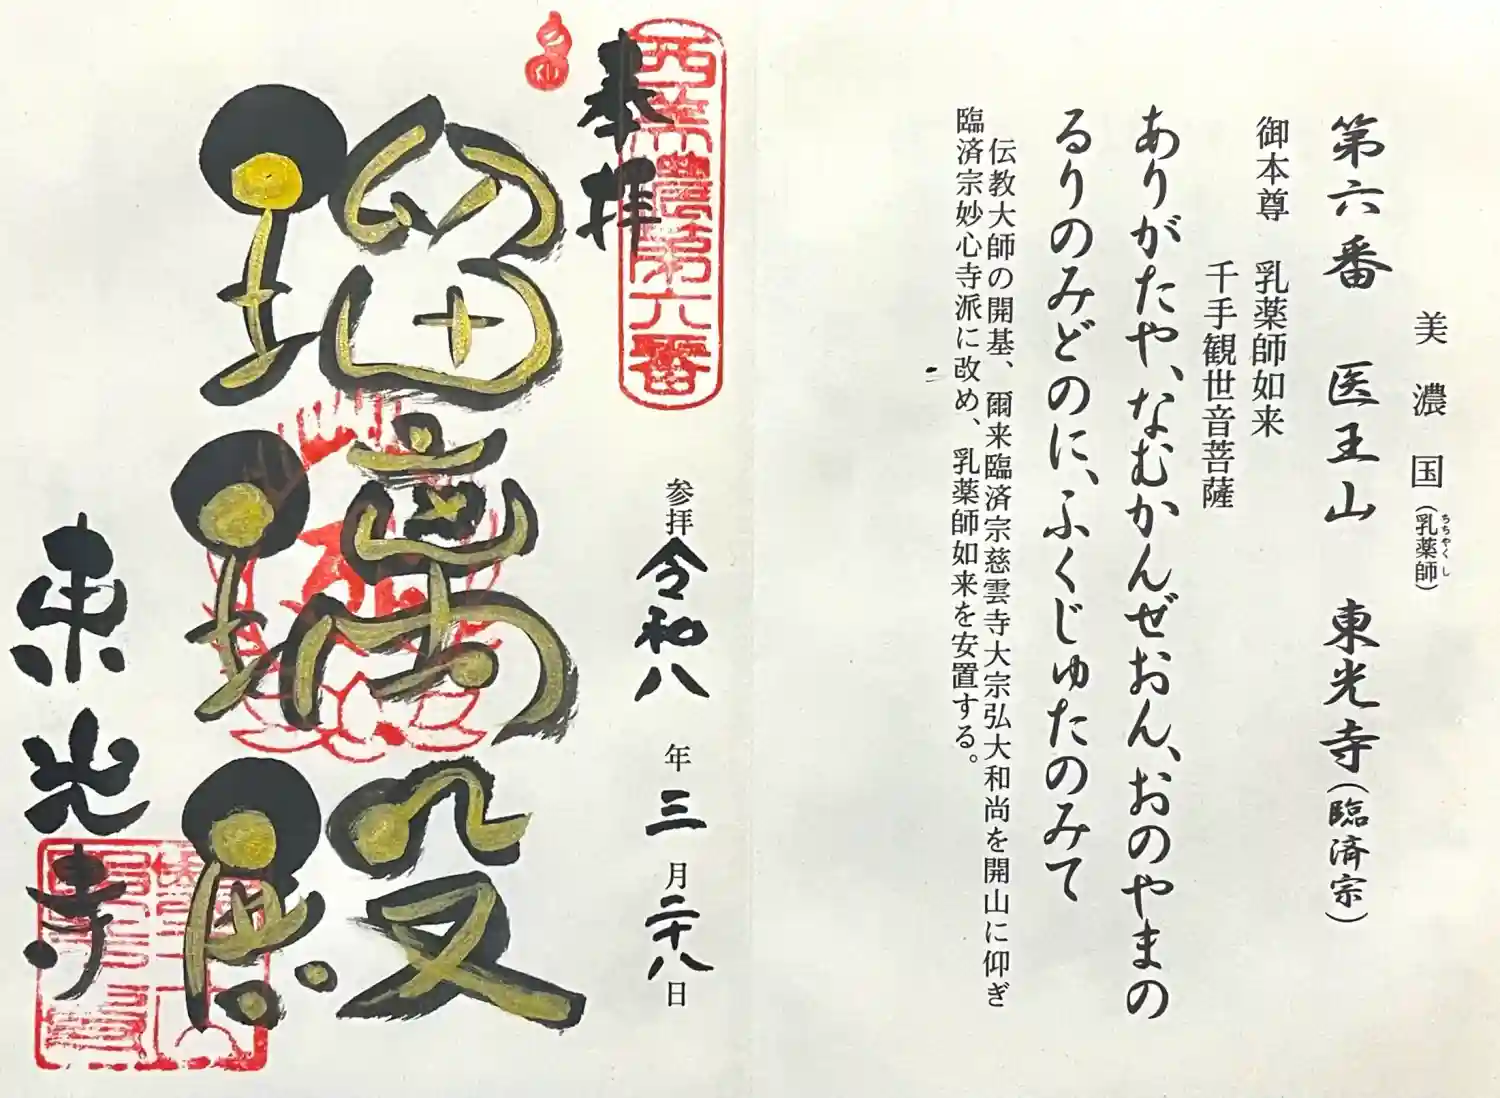 美濃国(乳薬師)
ちちやくし
第六番 医王山 東光寺(臨済宗)
御本尊 乳薬師如来
千手観世音菩薩
ありがたや、なむかんぜおん、おのやまの
るりのみどのに、ふくじゅたのみて
伝教大師の開基、爾来臨済宗慈雲寺大宗弘大和尚を開山に仰ぎ
臨済宗妙心寺派に改め、乳薬師如来を安置する。
西美濃第六番
奉拝
参拝令和八年三月二十八日
瑠璃殿
東光寺